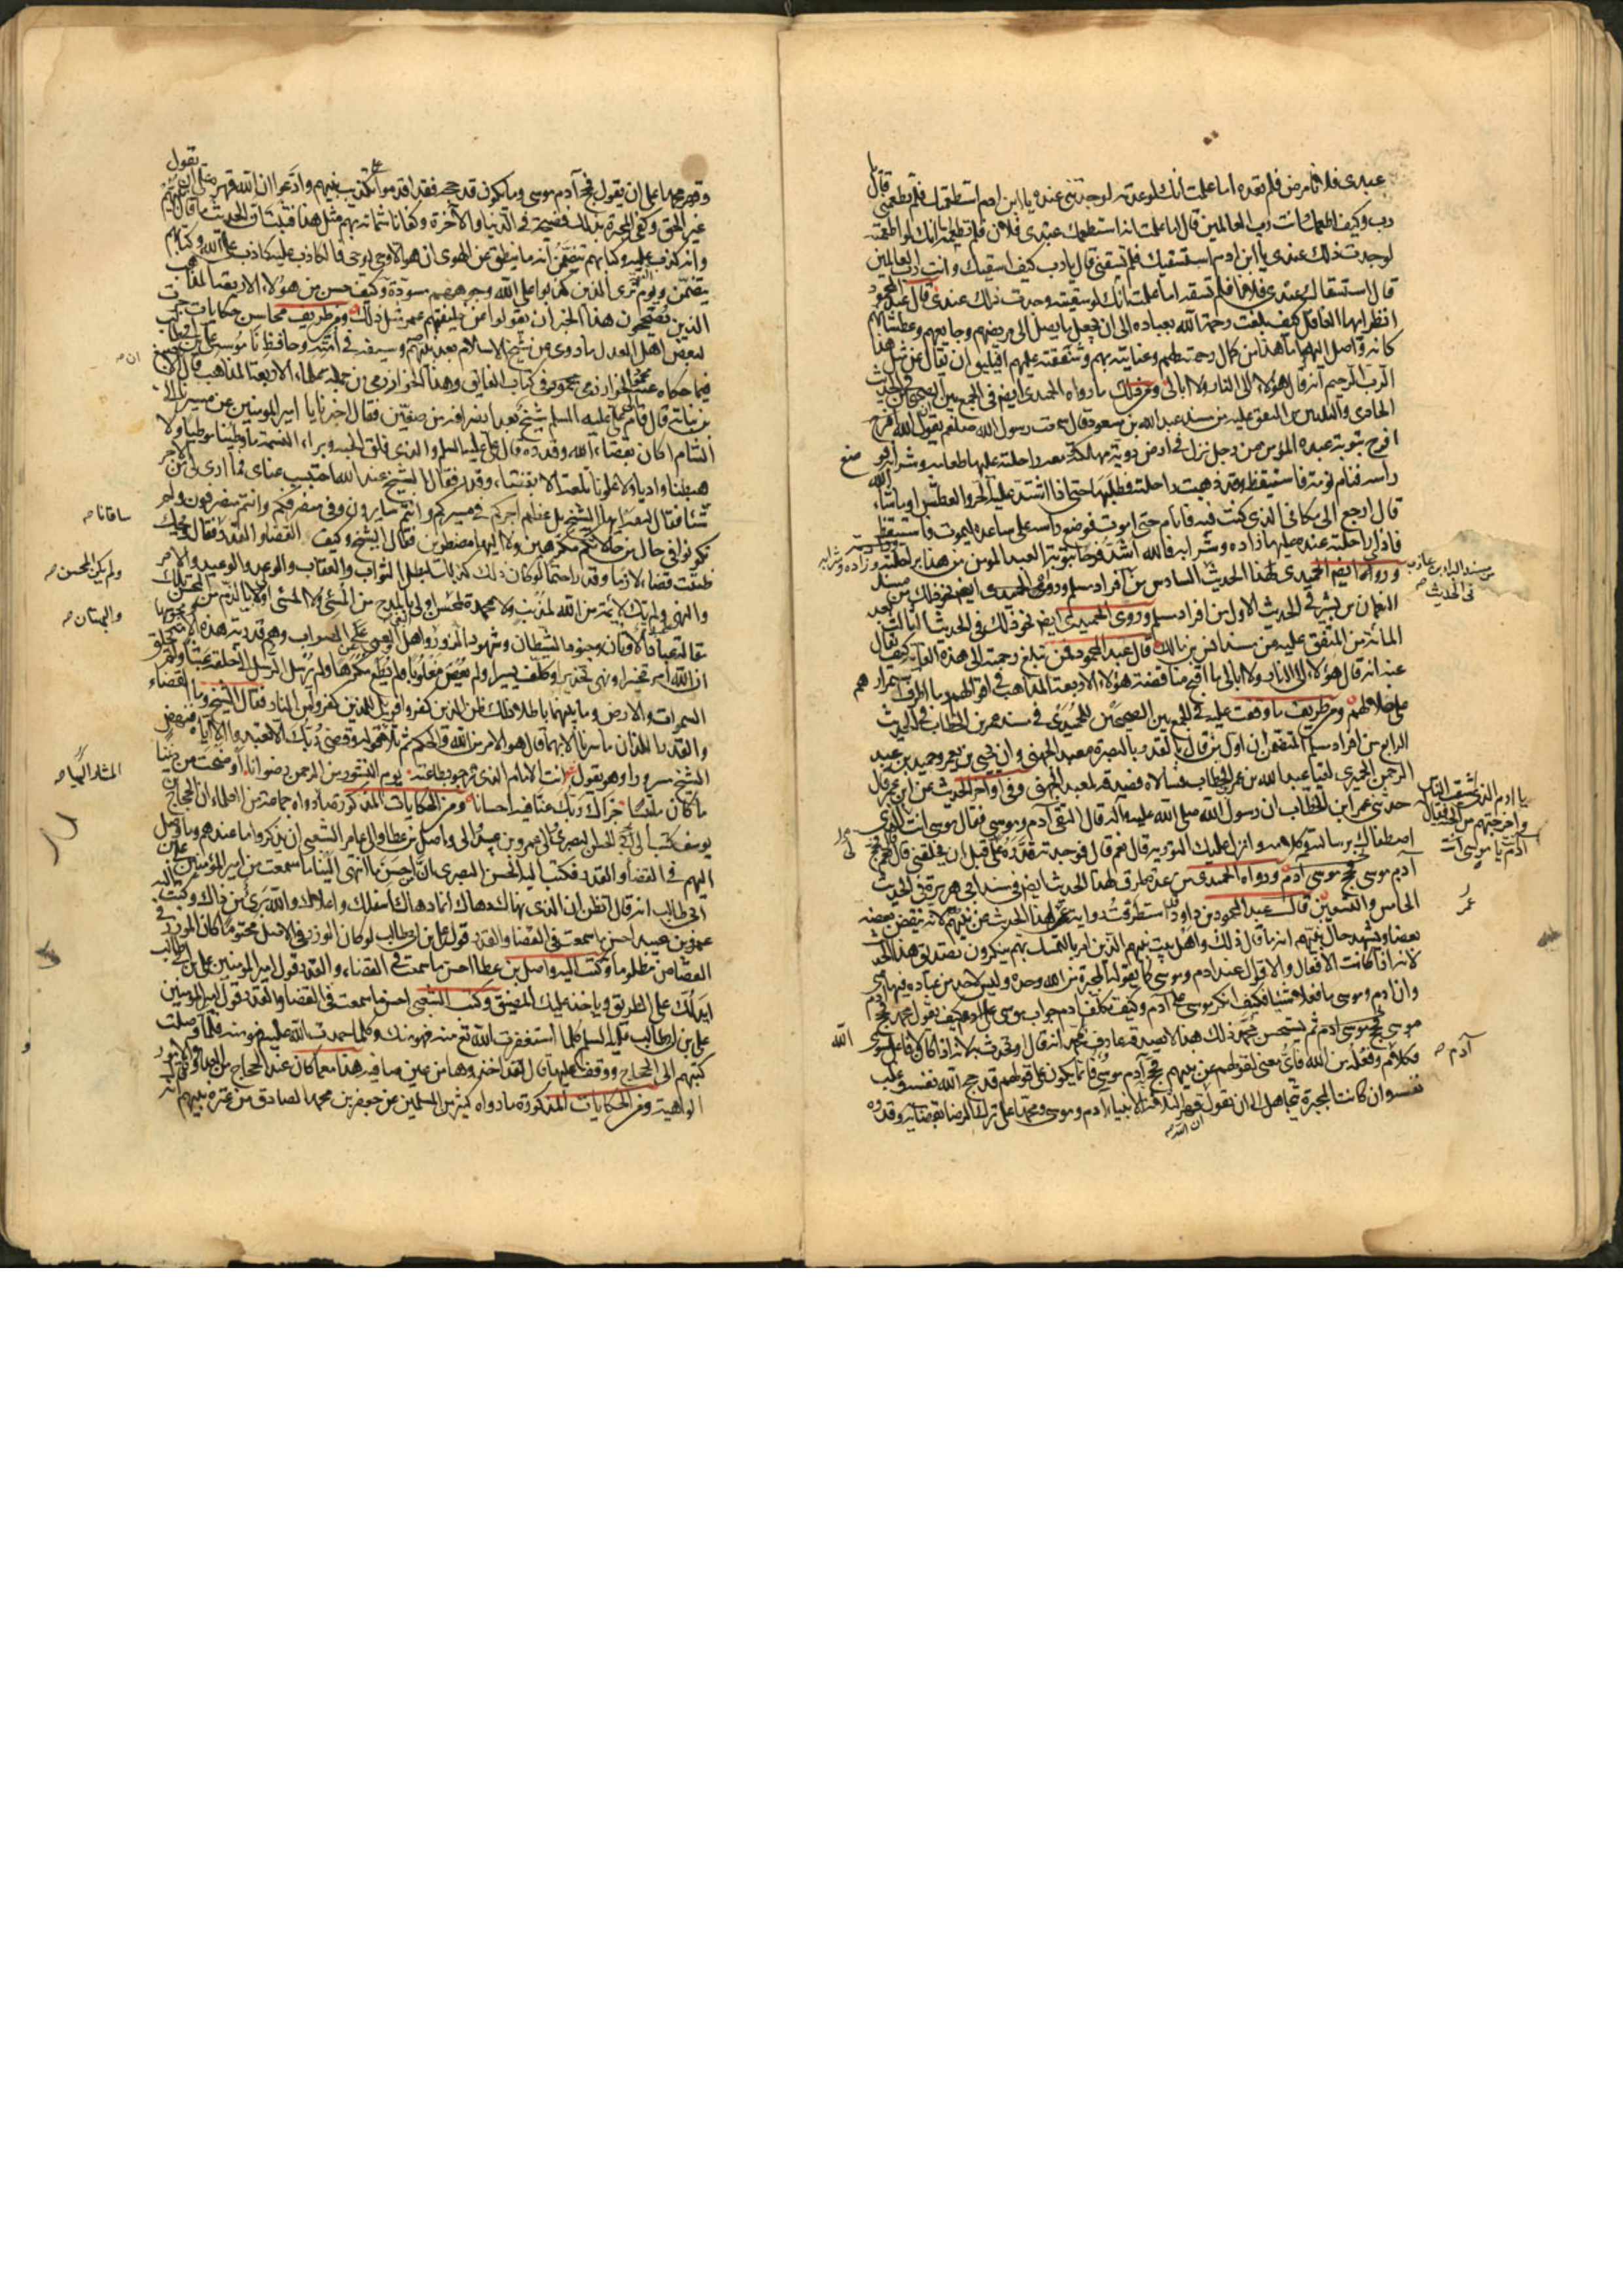 عبدى فلانا مرض فلم تعده اما علمت انك لو عدته لوجدتنى عنده يا ابن ادم استطعمتك فلم تطعمنى قال يا
رب وكيف اطعمك وانت رب العالمين قال اما علمت انه استطعمك عبدى فلان فلم تطعمه اما انك لو اطعمته
لوجدت ذلك عندى يا ابن ادم استسقيتك فلم تسقنى قال يا رب كيف اسقيك وانت رب العالمين
قال استسقاك عبدى فلان فلم تسقه اما علمت انك لو سقيته وجدت ذلك عندى قال عبد المحمود
انظر ايها العاقل كيف بلغت رحمة الله بعباده الى ان جعل ما يصل الى مريضهم وجايعهم وعطشانهم
كانه واصل اليه اما هذا من كمال رحمته لهم وعنايته بهم وشفقته عليهم افيليق ان يقال عن مثل هذا
الرب الرحيم انه قال هؤلاء الى النار ولا ابالى ومن ذلك ما رواه الحميدى ايضا فى الجمع بين الصحيحين فى الحديث
الحادى والثلثين من المتفق عليه من مسند عبد الله بن مسعود قال سمعت رسول الله صلعم يقول الله افرح
افرح بتوبة عبده المؤمن من رجل نزل فى ارض دوية مهلكة معه راحلته عليها طعامه وشرابه فوضع
راسه فنام نومة فاستيقظ وقد ذهبت راحلته فطلبها حتى اذا اشتد عليه الحر والعطش او ما شاء الله
قال ارجع الى مكانى الذى كنت فيه فانام حتى اموت فوضع راسه على ساعده ليموت فاستيقظ
فاذا راحلته عنده عليها زاده وشرابه فالله اشد فرحا بتوبة العبد المؤمن من هذا براحلته وزاده وشرابه
ورواه ايضا الحميدى لهذا الحديث السادس من افراد مسلم وروى الحميدى ايضا نحو ذلك من مسند
من مسند البراء بن عازب
فى الحديث
النعمان بن بشير فى الحديث الاول من افراد مسلم وروى الحميدى ايضا نحو ذلك فى الحديث الثالث بعد
المائة من المتفق عليه من مسند انس بن مالك قال عبد المحمود فمن تبلغ رحمته الى هذه الغاية كيف يقال
عنه انه قال هؤلاء الى النار ولا ابالى ما اقبح مناقضة هؤلاء الاربعة المذاهب فى اقوالهم وما اطرف استمرارهم
على ضلالهم ومن طريف ما وقفت عليه فى الجمع بين الصحيحين للحميدى فى مسند عمر بن الخطاب فى الحديث
الرابع من افراد مسلم المتضمن ان اول من قال بالقدر بالبصرة معبد الجهنى وان يحيى بن يعمر وحميد بن عبد
الرحمن الحميرى لقيا عبد الله بن عمر بن الخطاب فسالاه فضيه لمعبد الجهنى وفى اواخر الحديث عن ابن عمر قال
حدثنى عمر ابن الخطاب ان رسول الله صلى الله عليه واله قال التقى آدم وموسى فقال موسى انت الذى
يا ادم الذى اشقيت الناس
واخرجتهم من الجنة فقال
آدم يا موسى انت
اصطفاك برسالته وكلامه وانزل عليك التورية قال نعم قال فوجدته قدره على قبل ان يخلقنى قال نعم فحج
آدم موسى فحج موسى آدم ورواه الحميدى من عدة طرق لهذا الحديث ايضا فى مسند ابى هريرة فى الحديث
الخامس والتسعين قال عبد المحمود بن داود قد استطرفت رواية عمر لهذا الحديث عن نبيهم لانه ينقض بعضه
عمر
بعضا ويشهد حال نبيهم انه ما قال ذلك واهل بيت نبيهم الذين امر بالتمسك بهم ينكرون تصديق هذا الحديث
لانه اذا كانت الافعال والاقوال عند ادم وموسى كما يقوله المجبرة من الله وحده وليس لاحد من عباده فيها شىء
وان ادم وموسى ما فعلا شيئا فكيف انكر موسى على آدم وكيف تكلف ادم جواب موسى على ادم وكيف يقول محمد فحج ادم
موسى فحج موسى ادم ثم يستحسن محمد ذلك هذا لا يصدقه عارف بمحمد انه قال
آدم
الله
فكلامهم وفعلهم من الله فاى معنى لقولهم عن نبيهم فحج آدم موسى فانما يكون على قولهم قد حج الله نفسه وغلب
نفسه وان كانت المجبرة تتجاهل الى ان تقول قهر الثلاثة الانبياء ادم وموسى ومحمدا على ترك الرضا بقضائه وقدره
ان الله
وقهر محمدا على ان يقول فحج آدم موسى وما يكون قد حج فقد اقدموا على تكذيب نبيهم وادعوا ان الله قهره على ان يقول
غير الحق وكفى المجبرة بذلك فضيحة فى الدنيا والاخرة وكفانا شماتة بهم مثل هذا فثبت ان الحديث ما قاله نبيهم
وانه كذب عليه وكتابهم يتضمن انه ما ينطق عن الهوى ان هو الا وحى يوحى فالكاذب عليه كاذب على الله وكتابهم
يتضمن ويوم القيمة ترى الذين كذبوا على الله وجوههم مسودة وكيف حسن من هؤلاء الاربعة المذاهب
الذين يصححون هذا الخبر ان يقولوا عن خليفتهم عمر مثل ذلك ومن طريف محاسن حكايات جرت
لبعض اهل العدل ما روى من شيخ الاسلام بعد نبيهم وسيفه فى امته وحافظ ناموسه على بن ابى طالب
فيما حكاه عنه محمود الخوارزمى فى كتاب الفايق وهذا الخوارزمى من جملة علماء الاربعة المذاهب قال الاصبغ
بن نباتة قال قام الى على عليه السلم شيخ بعد انصرافه من صفين فقال اخبرنا يا امير المؤمنين عن مسيرنا الى
الشام اكان بقضاء الله وقدره فقال على عليه السلم والذى فلق الحبة وبرا النسمة ما وطينا موطيا ولا
هبطنا واديا ولا علونا تلعة الا بقضاء وقدر فقال الشيخ عند الله احتسب عناى ما ارى لى من الاجر
شيئا فقال له مه ايها الشيخ بل عظم الله اجركم فى مسيركم وانتم سايرون وفى منصرفكم وانتم منصرفون ولم
تكونوا فى حال من حالاتكم مكرهين ولا اليها مضطرين فقال الشيخ وكيف القضاء والقدر فقال ويحك
ساقانا
ظننت قضاء لازما وقدرا حتما لو كان ذلك كذلك لبطل الثواب والعقاب والوعد والوعيد والامر
ولم يكن المحسن
والنهى ولم تك لائمة من الله لمذنب ولا محمدة لمحسن اولى بالمدح من المسىء ولا المسىء اولى بالذم من المحسن تلك
والبهتان
مقالة عبدة الاوثان وجنود الشيطان وشهود الزور واهل العمى عن الصواب وهم قدرية هذه الامة ومجوسها
ان الله امر تخييرا ونهى تحذيرا وكلف يسيرا ولم يعص مغلوبا ولم يطع مكرها ولم يرسل الرسل الى خلقه عبثا ولم يخلق
السموات والارض وما بينهما باطلا ذلك ظن الذين كفروا فويل للذين كفروا من النار فقال الشيخ وما القضاء
والقدر اللذان ما سرنا الا بهما قال هو الامر من الله والحكم ثم تلا قوله وقضى ربك الا تعبدوا الا اياه فنهض
المشار اليها
الشيخ مسرورا وهو يقول انت الامام الذى نرجو بطاعته يوم النشور من الرحمن رضوانا اوضحت من ديننا
ما كان ملتبسا جزاك ربك عنا فيه احسانا ومن الحكايات المذكورة ما رواه جماعة من العلماء ان الحجاج بن
يوسف كتب الى الحسن البصرى والى عمرو بن عبيد والى واصل بن عطا والى عامر الشعبى ان يذكروا ما عندهم وما وصل
اليهم فى القضا والقدر فكتب اليه الحسن البصرى ان من احسن ما انتهى الينا ما سمعت من امير المؤمنين على بن
ابى طالب انه قال اتظن ان الذى نهاك دهاك انما دهاك اسفلك واعلاك والله برئ من ذاك وكتب اليه
عمرو بن عبيد احسن ما سمعت فى القضا والقدر قول على بن ابى طالب لو كان الوزر فى الاصل محتوما كان الموزر فى
القصاص مظلوما وكتب اليه واصل بن عطا احسن ما سمعت فى القضاء والقدر قول امير المؤمنين على بن ابى طالب
ايدلك على الطريق وياخذ عليك المضيق وكتب الشعبى احسن ما سمعت فى القضا والقدر قول امير المؤمنين
على بن ابى طالب عليه السلم كلما استغفرت الله تع منه فهو منك وكلما حمدت الله عليه فهو منه فلما وصلت
كتبهم الى الحجاج ووقف عليها قال لقد اخذوها من عين صافية هذا مع ما كان عند الحجاج من العداوة والامور
الواهية ومن الحكايات المذكورة ما رواه كثير من المسلمين عن جعفر بن محمد الصادق من عترة نبيهم انه